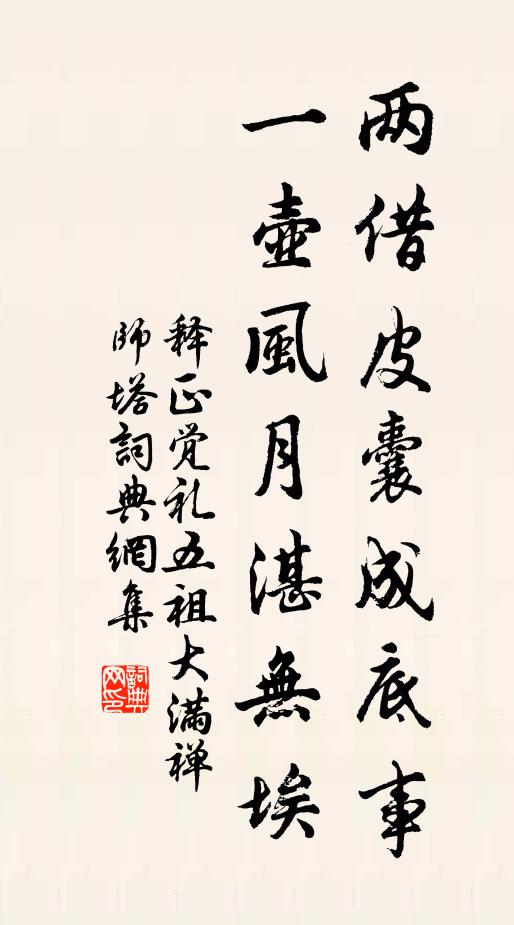 两借皮囊成底事
一壺風月湛無埃
释正觉礼五祖大滿禅
師塔詞典網集
詞典
网印